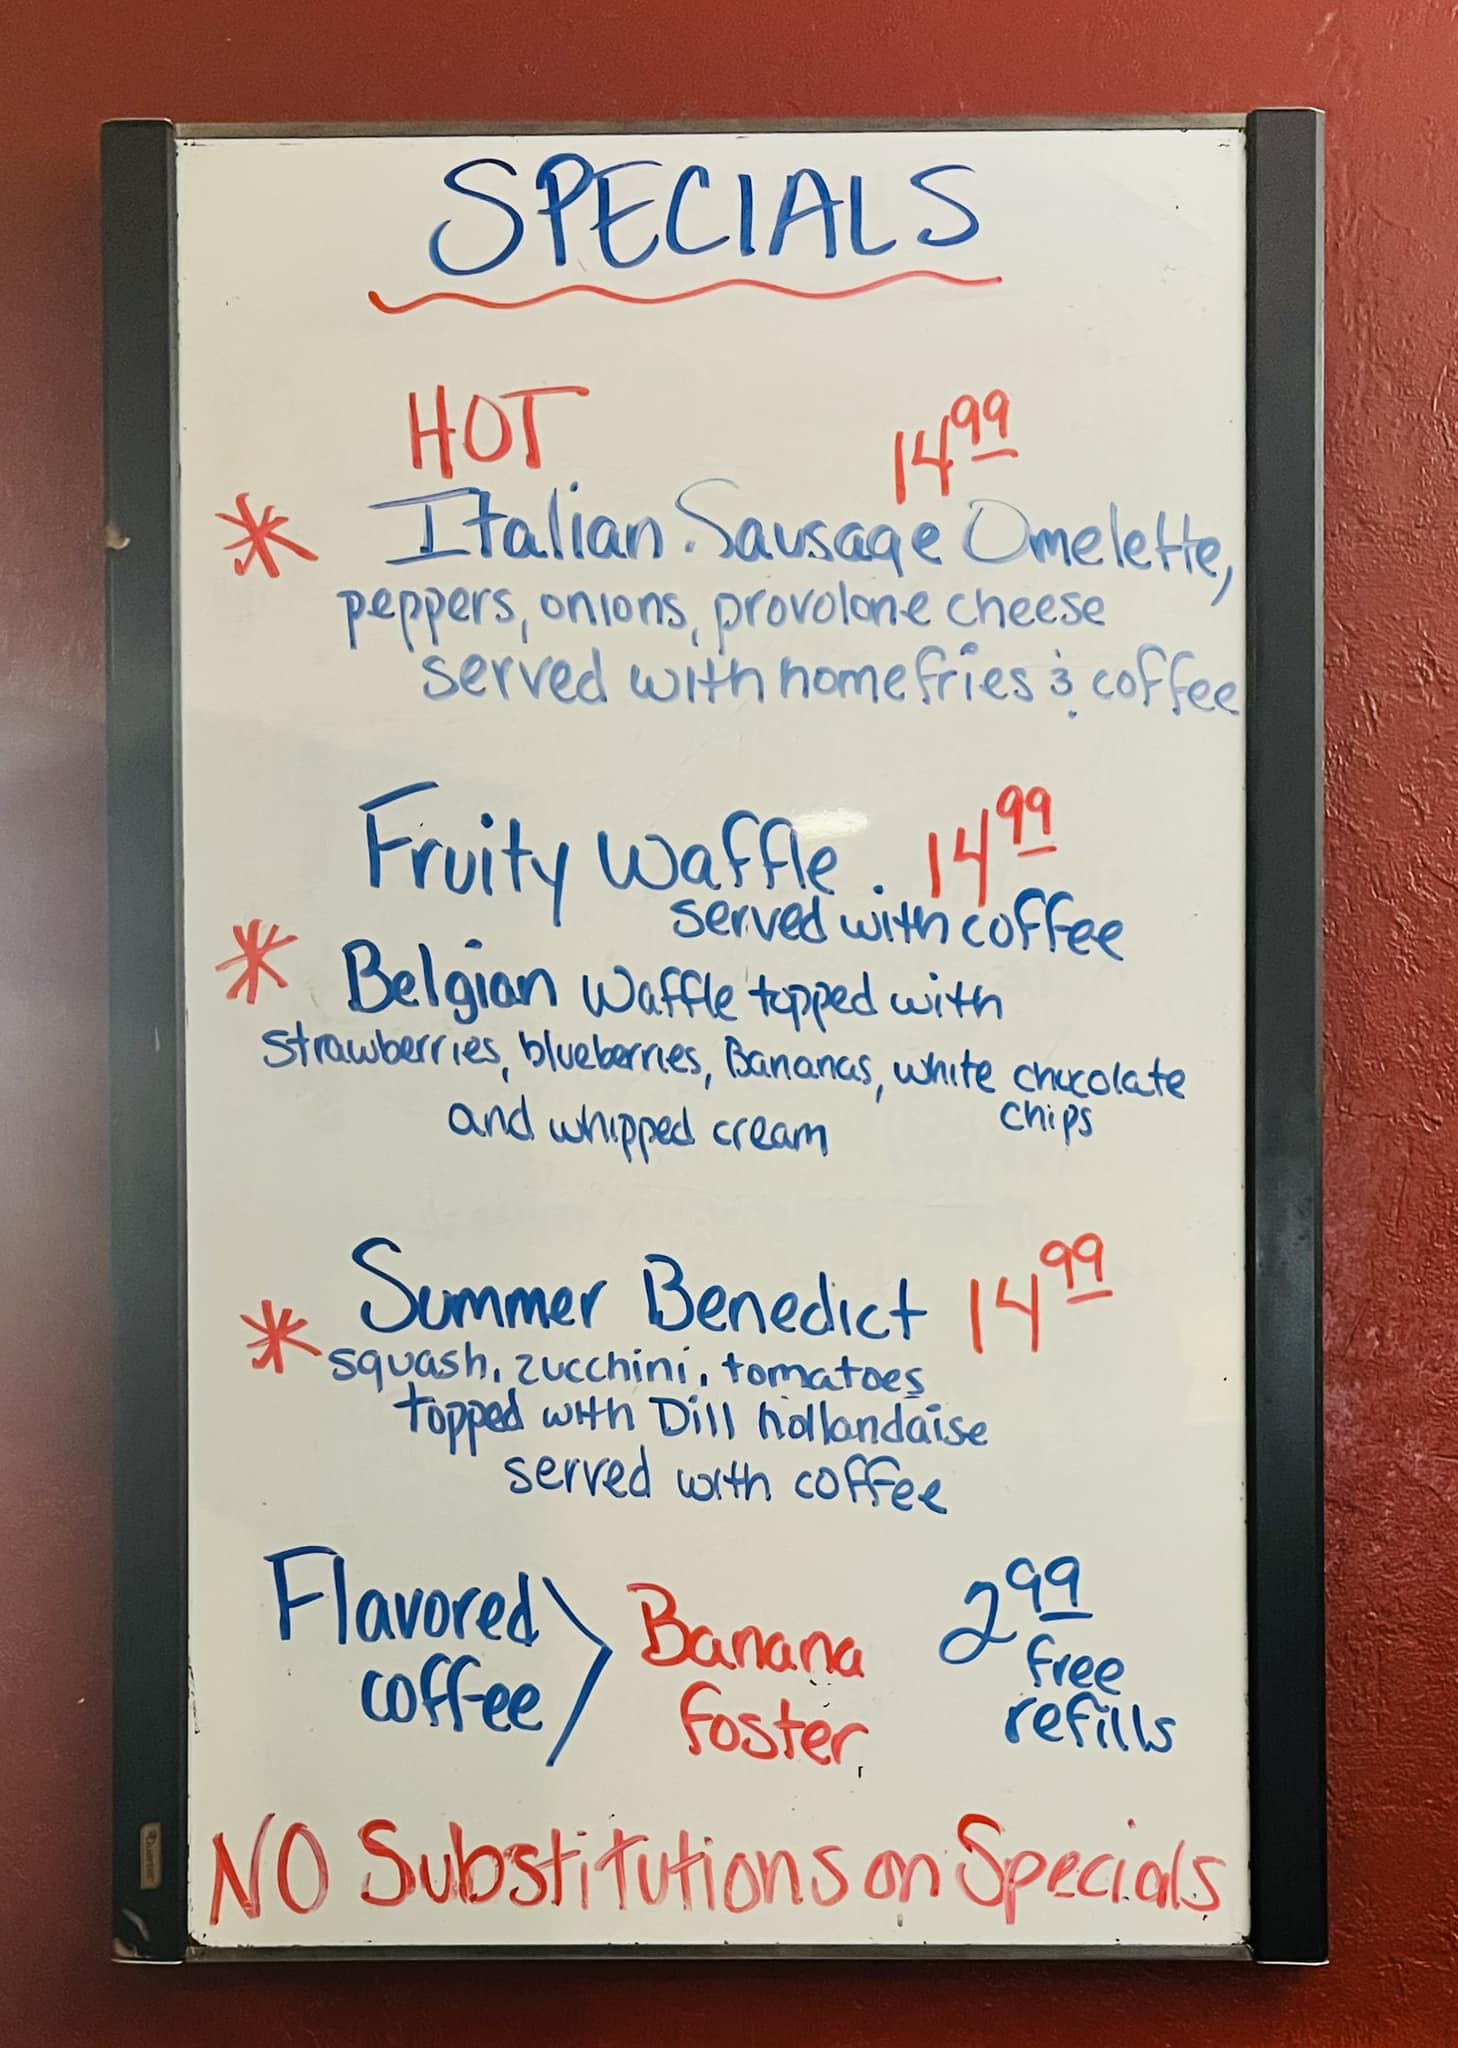 SPECIALS
HOT 14 99
* Italian Sausage Omelette,
peppers, onions, provolone cheese
served with homefries & coffee
Fruity Waffle . 14 99
served with coffee
* Belgian Waffle topped with
strawberries, blueberries, Bananas, white chocolate
chips
and whipped cream
Summer Benedict 14 99
* squash, zucchini, tomatoes
topped with Dill hollandaise
served with coffee
Flavored
coffee
Banana
foster
2 99
free
refills
NO Substitutions on Specials